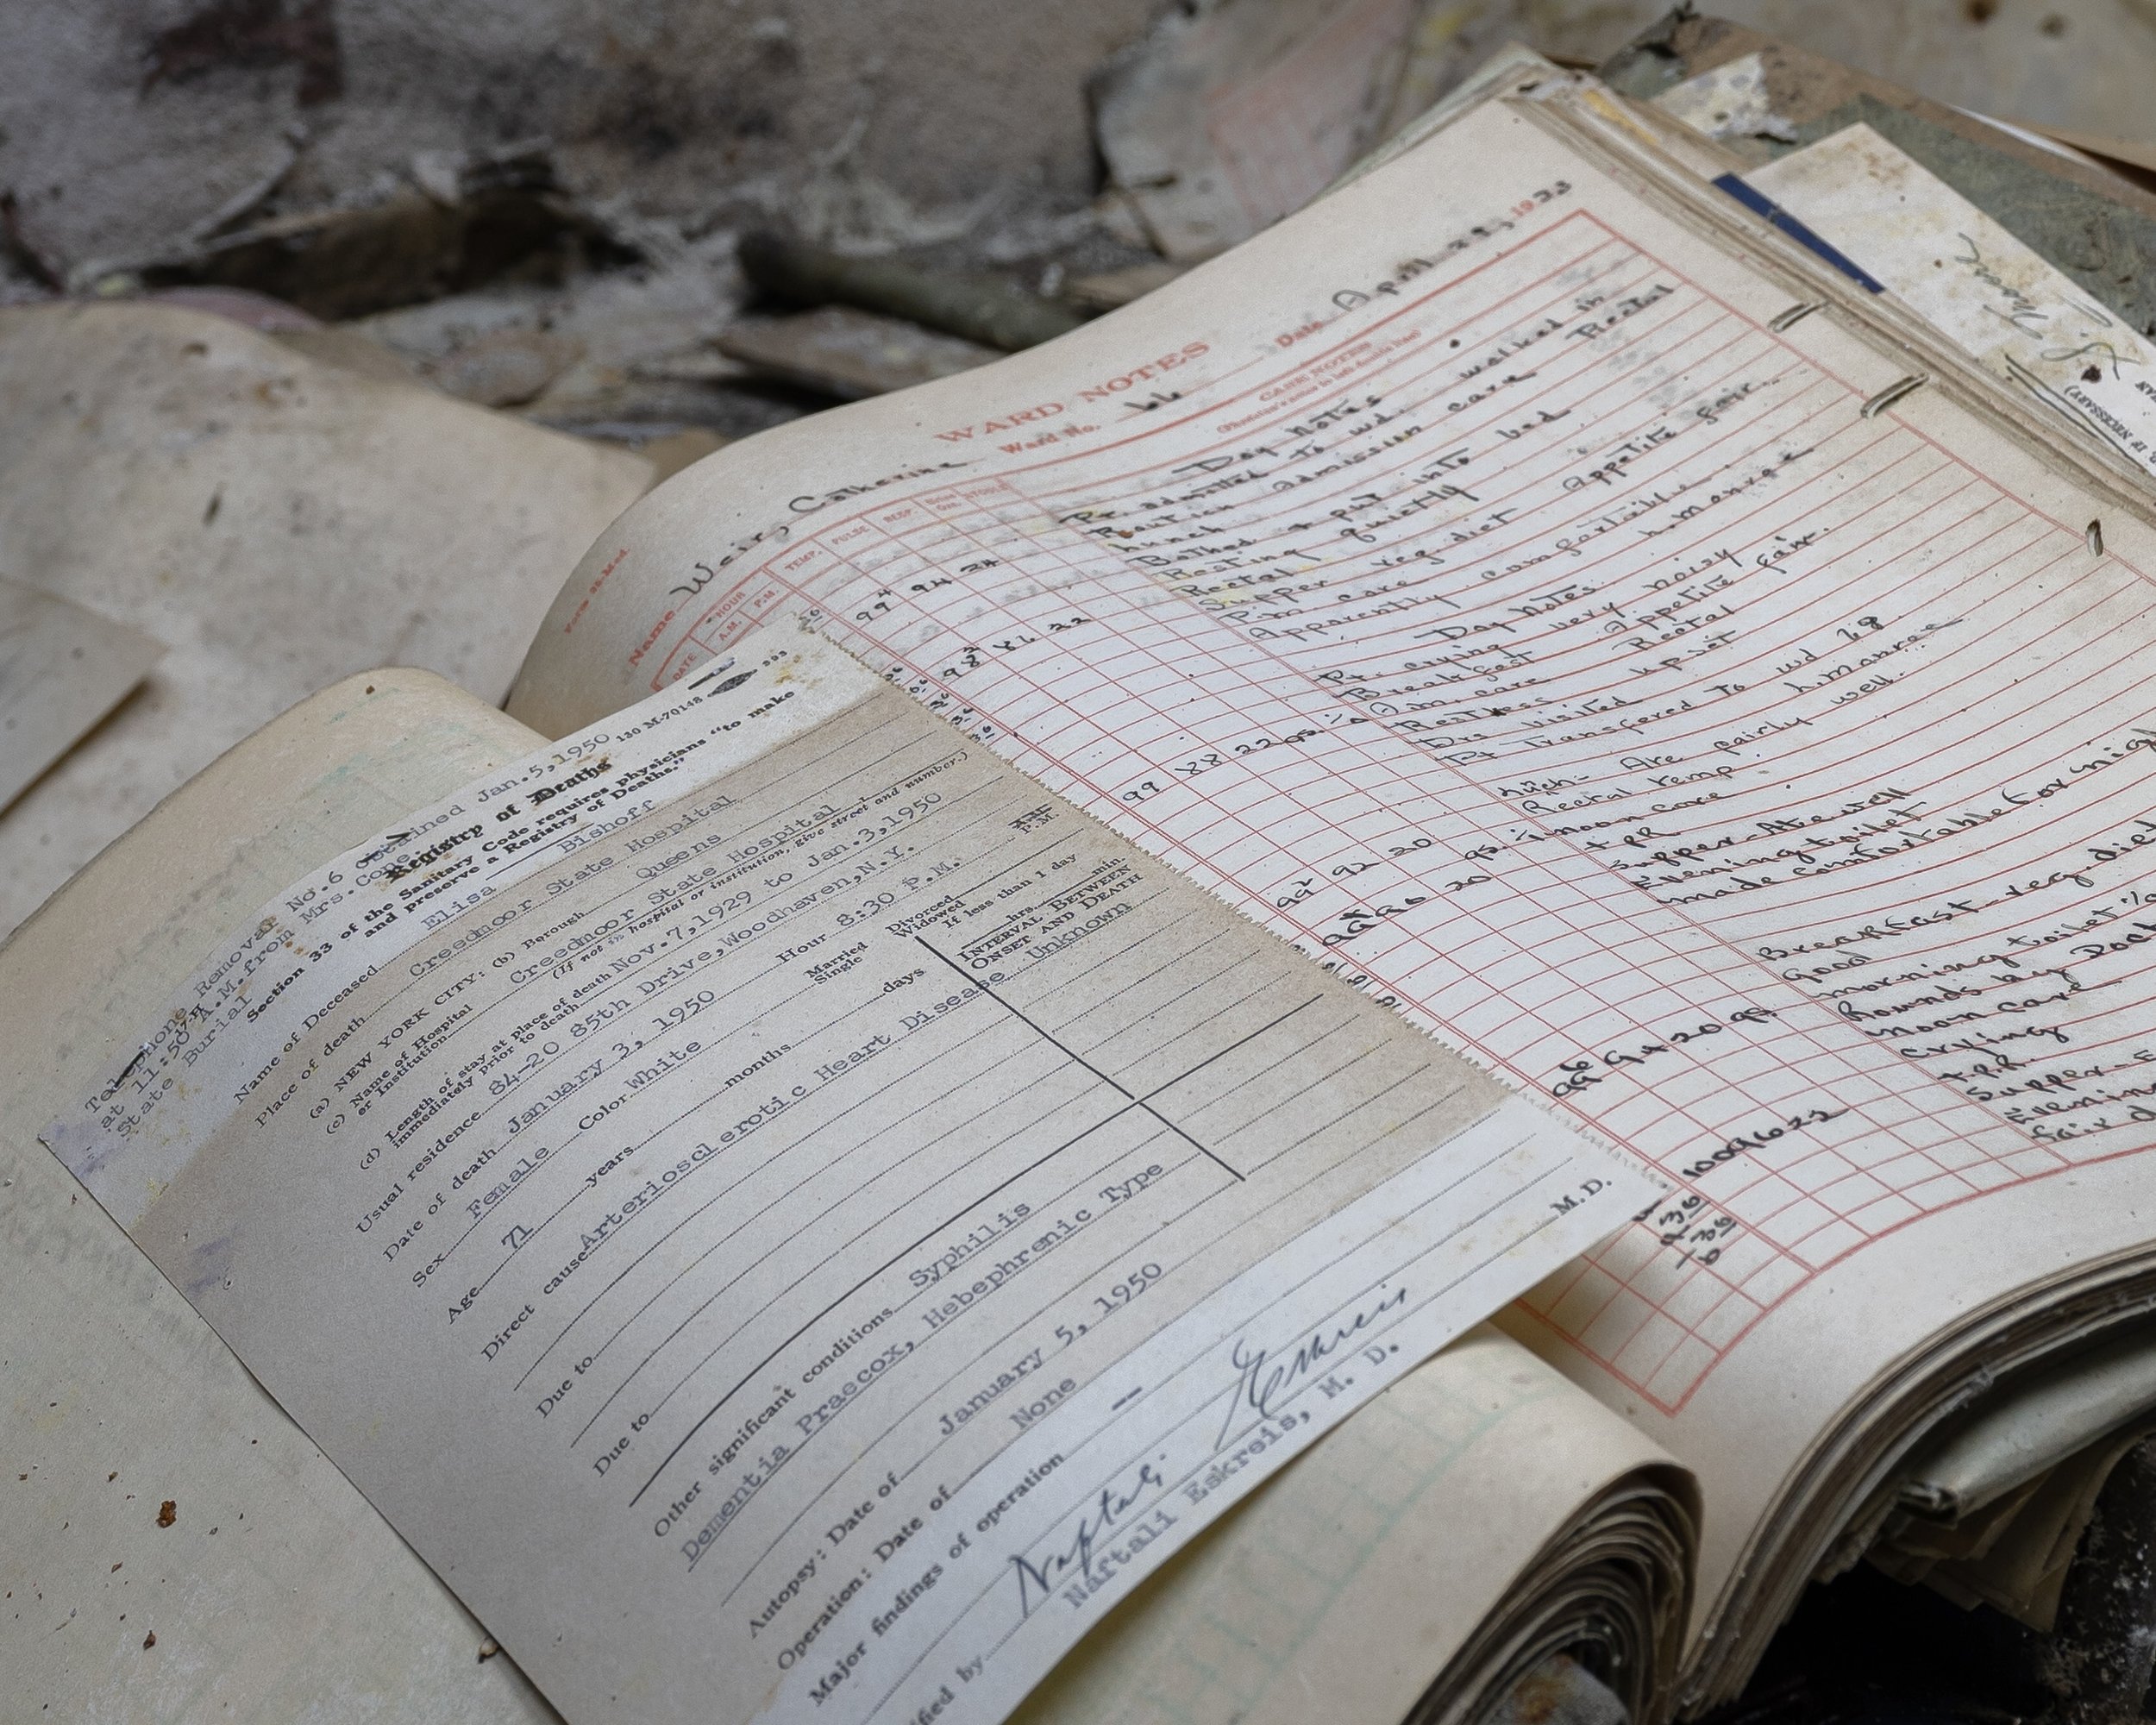 Telephone Removal No.6 obtained Jan.5,1950 130 M-70148 593
at 11:50 A.M. from Mrs.Cone.
State Burial
Registry of Deaths
Section 33 of the Sanitary Code requires physicians "to make
and preserve a Registry of Deaths."
Name of Deceased Elisa Bishoff
Place of death Creedmoor State Hospital
(a) NEW YORK CITY: (b) Borough Queens
(c) Name of Hospital or Institution Creedmoor State Hospital
(If not in hospital or institution, give street and number.)
(d) Length of stay at place of death immediately prior to death Nov.7,1929 to Jan.3,1950
Usual residence 84-20 85th Drive,Woodhaven,N.Y.
Date of death January 3, 1950 Hour 8:30 P.M. P.M.
Sex Female Color White Married Single Divorced Widowed
Age 71 years months days If less than 1 day hrs. min.
INTERVAL BETWEEN
ONSET AND DEATH
Direct cause Arteriosclerotic Heart Disease Unknown
Due to
Due to
Other significant conditions Syphilis
Dementia Praecox, Hebephrenic Type
Autopsy: Date of January 5, 1950
Operation: Date of None
Major findings of operation --
M.D.
Naftali Eskreis
Naftali Eskreis, M. D.
WARD NOTES
Name Weir, Catherine Ward No. Date April
CARE NOTES
DATE HOUR A.M. P.M. TEMP. PULSE RESP.
Day Notes
Pt. admitted to wd. walked in
Routine Admission care Rectal
Lunch
Bathed + put into bed
Resting quietly
Rectal
Supper reg. diet Appetite fair
P.m. care
Apparently comfortable
99⁴ 94 24
98² 86 22
Day Notes
Pt. crying very noisy
Breakfast Appetite fair.
A.m. care Rectal
Restless upset
Drs visited
Pt Transfered to wd
99 88 22
Lunch- Ate fairly well.
Rectal temp
noon care
T.P.R.
Supper-Ate well
Evening toilet
made comfortable for
99² 92 20
Breakfast-reg. diet
Good
morning toilet
Rounds by
noon care
Crying
T.P.R.
Supper-
Evening